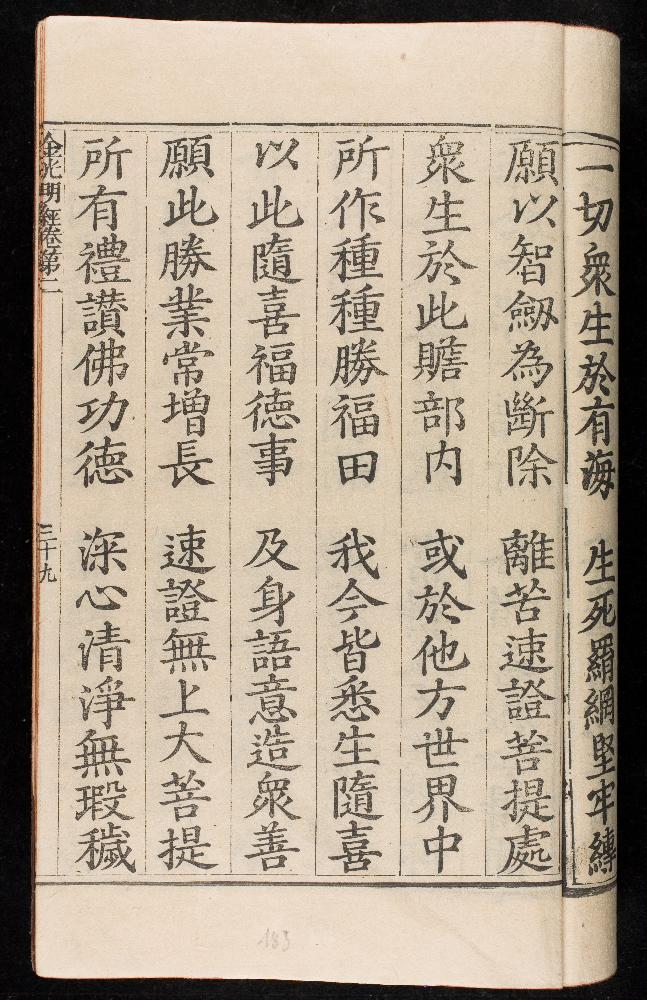 一切衆生於有海　生死羂網堅牢縛
願以智劒為斷除　離苦速證菩提處
衆生於此贍部内　或於他方世界中
所作種種勝福田　我今皆悉生隨喜
以此隨喜福德事　及身語意造衆善
願此勝業常增長　速證無上大菩提
所有禮讃佛功德　深心清淨無瑕穢
金光明經卷第二　三十九
183